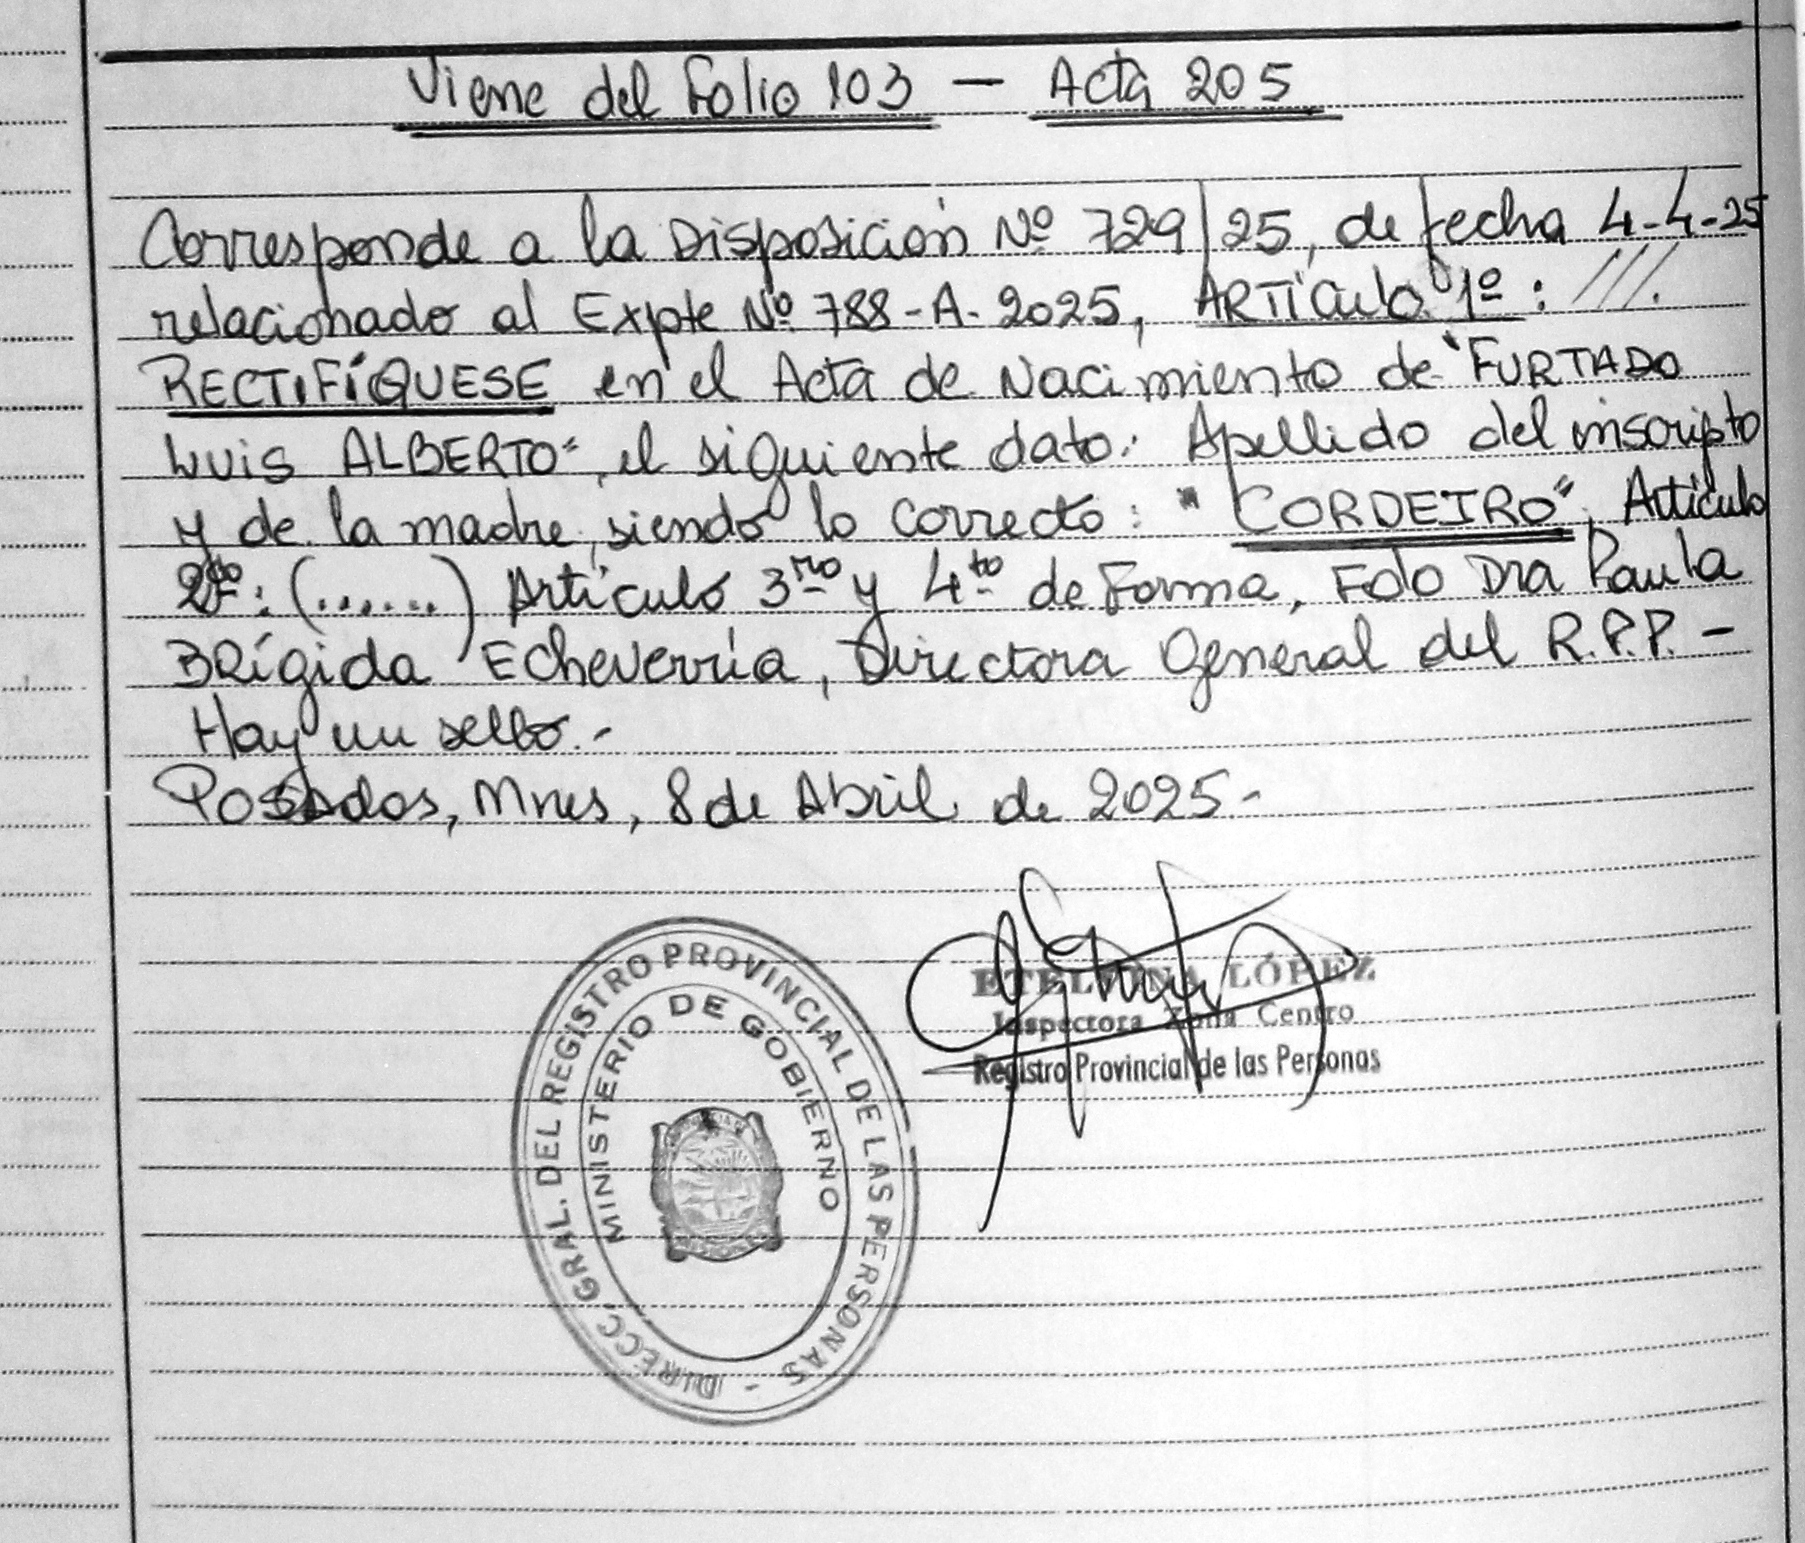 Viene del Folio 103 — Acta 205
Corresponde a la Disposición Nº 729/25, de fecha 4-4-25
relacionado al Expte Nº 788-A-2025, ARTÍCULO 1º: ///.
RECTIFÍQUESE en el Acta de Nacimiento de "FURTADO
LUIS ALBERTO", el siguiente dato: Apellido del inscripto
y de la madre, siendo lo correcto: "CORDEIRO", Artículo
2do: (......) Artículo 3ro y 4to de Forma, Fdo Dra Paula
Brígida Echeverría, Directora General del R.P.P.-
Hay un sello.-
Posadas, Mnes, 8 de Abril de 2025.-
ETELVINA LÓPEZ
Inspectora Zona Centro
Registro Provincial de las Personas
DIRECC. GRAL. DEL REGISTRO PROVINCIAL DE LAS PERSONAS -
MINISTERIO DE GOBIERNO